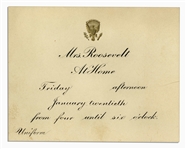 Mrs. Roosevelt
At Home
Friday afternoon
January twentieth
from four until six o'clock.
Uniform